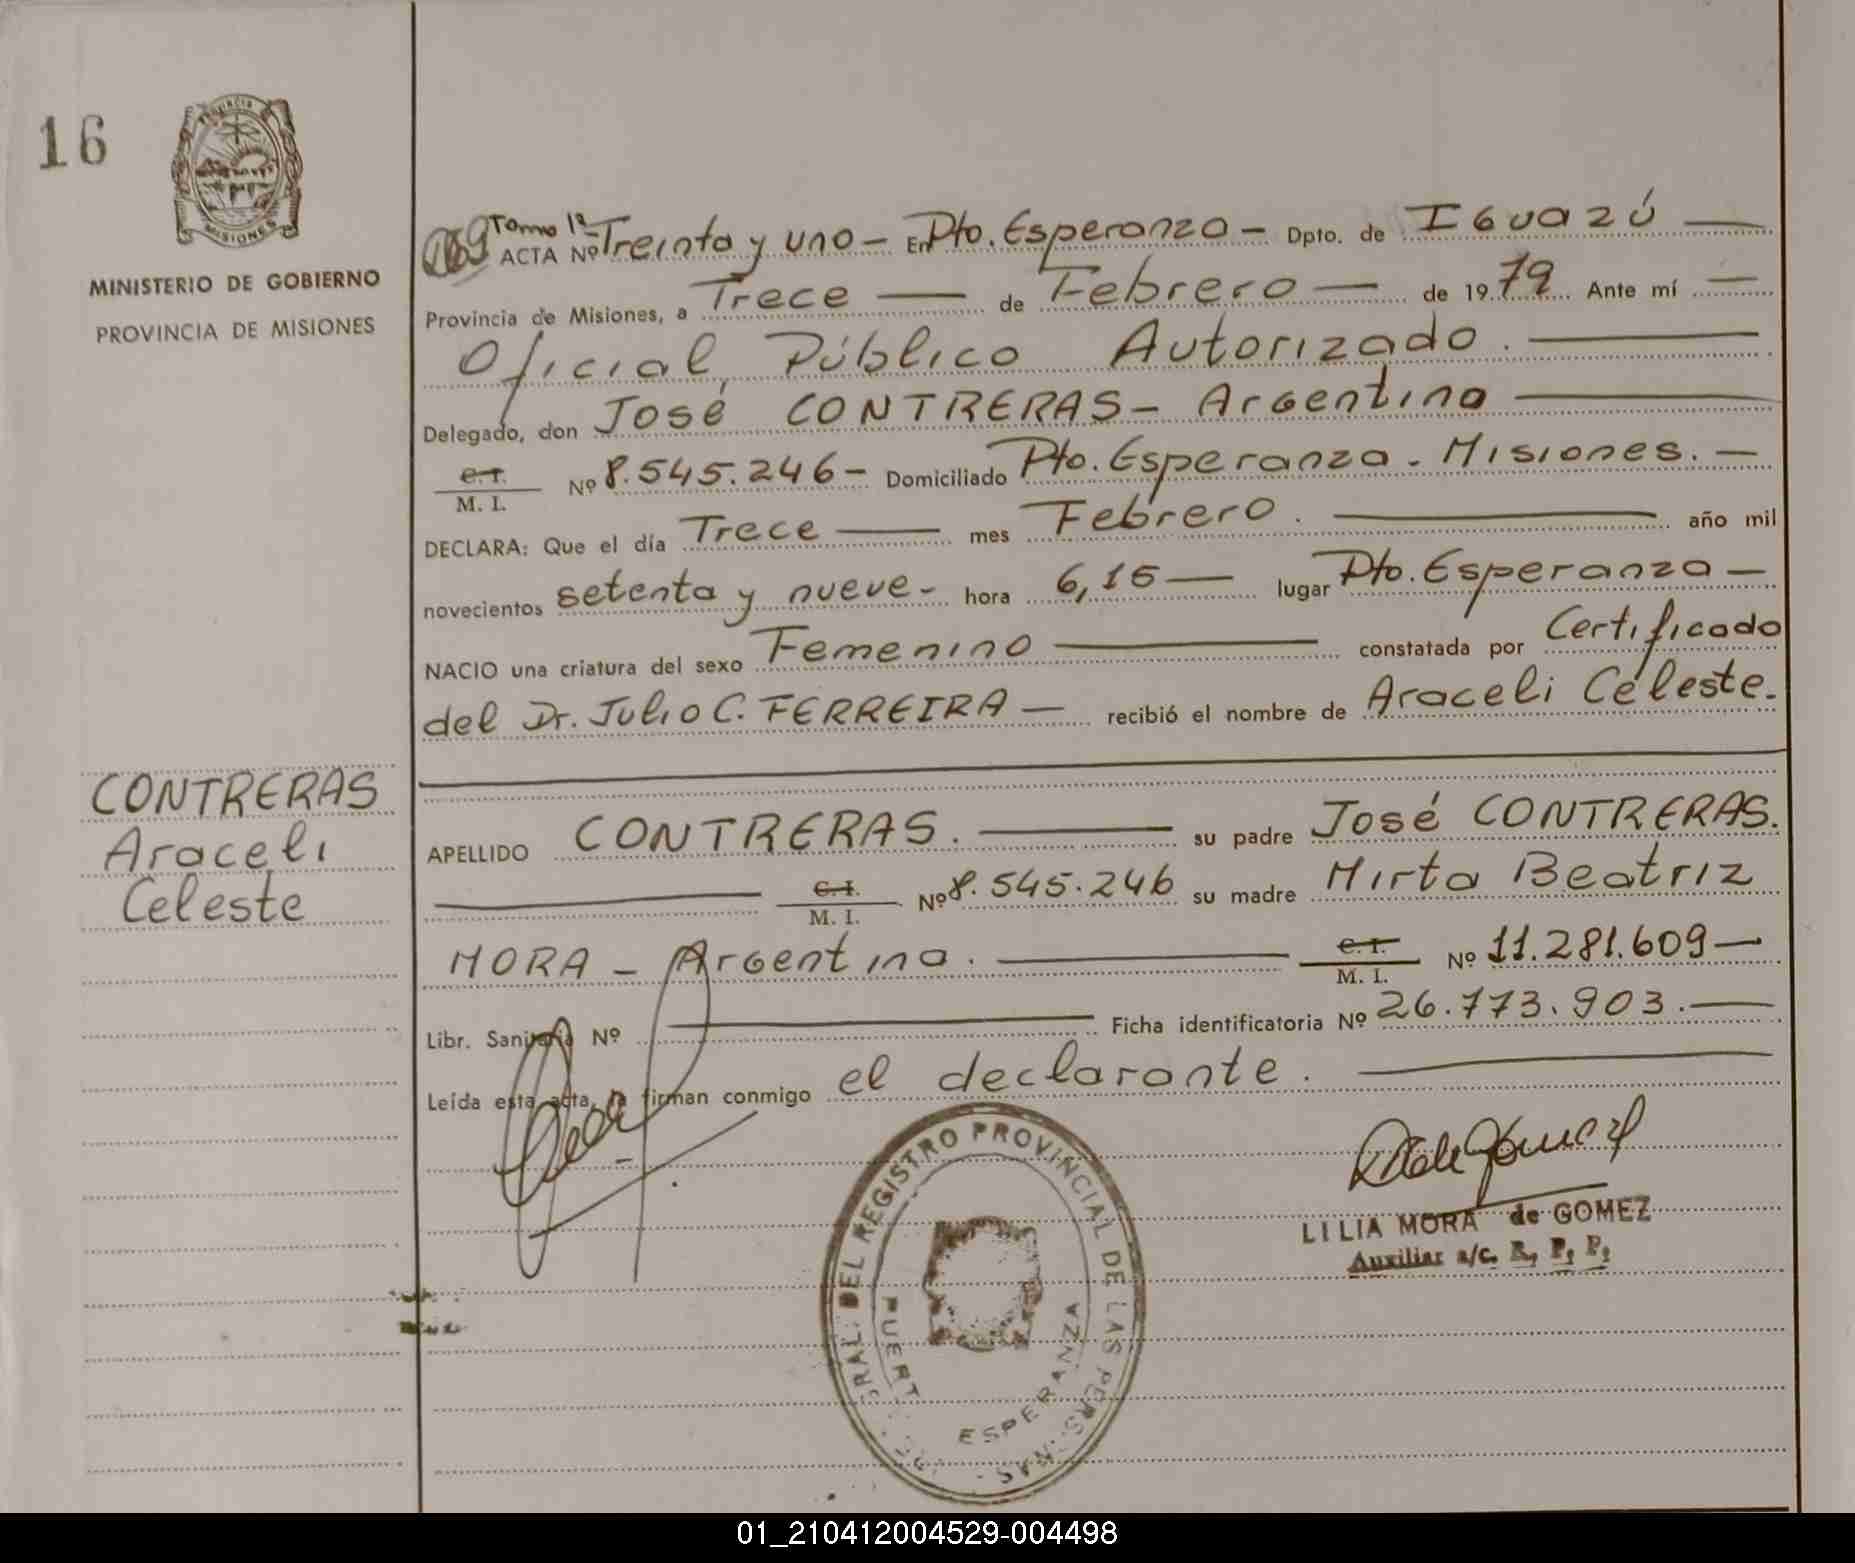 16
PROVINCIA
MISIONES
MINISTERIO DE GOBIERNO
PROVINCIA DE MISIONES
Tomo 1º
ACTA Nº Treinta y uno - En Pto. Esperanza - Dpto. de IGUAZÚ
Provincia de Misiones, a Trece de Febrero de 1979 Ante mí
Oficial Público Autorizado.
Delegado, don José CONTRERAS - Argentino
C.I.
M. I. Nº 8.545.246 - Domiciliado Pto. Esperanza - Misiones.
DECLARA: Que el día Trece mes Febrero. año mil
novecientos setenta y nueve - hora 6,15 lugar Pto. Esperanza
NACIO una criatura del sexo Femenino constatada por Certificado
del Dr. Julio C. FERREIRA recibió el nombre de Araceli Celeste.
CONTRERAS
Araceli
Celeste
APELLIDO CONTRERAS. su padre José CONTRERAS.
C.I.
M. I. Nº 8.545.246 su madre Mirta Beatriz
MORA - Argentina. C.I.
M. I. Nº 11.281.609
Libr. Sanitaria Nº Ficha identificatoria Nº 26.773.903.
Leída esta acta, la firman conmigo el declarante.
GRAL. DEL REGISTRO PROVINCIAL DE LAS PERSONAS
PUERTO ESPERANZA
LILIA MORA de GOMEZ
Auxiliar a/c. R. P. P.
01_210412004529-004498